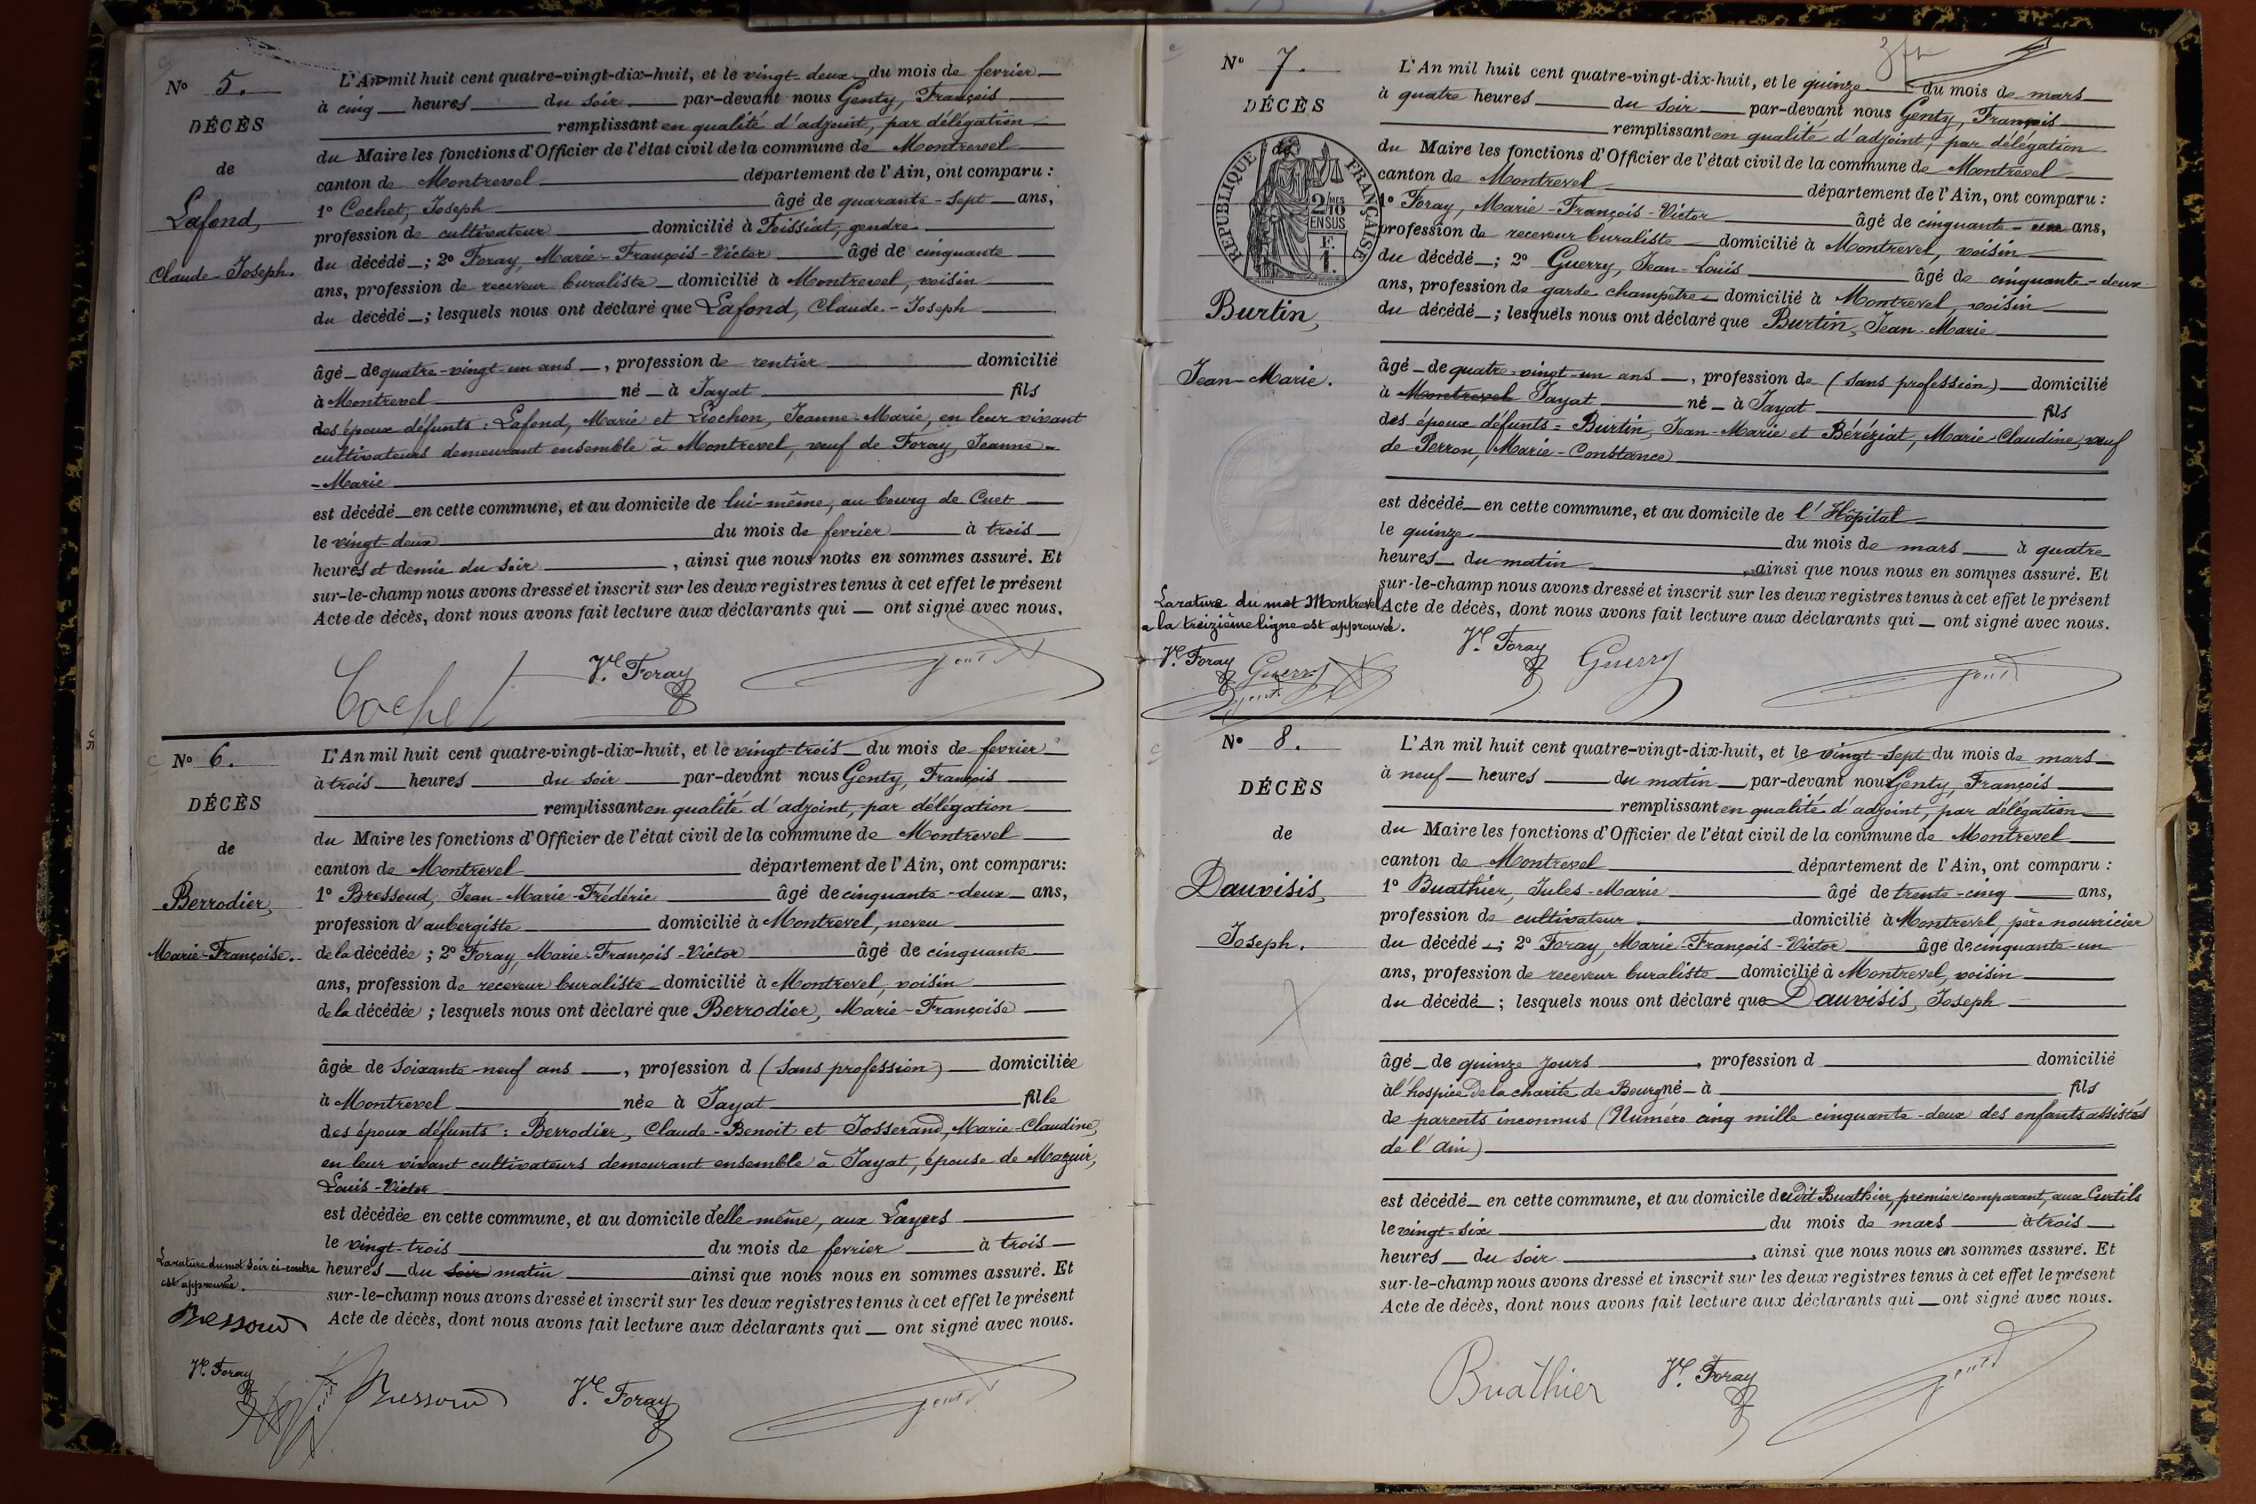 N° 5.
DÉCÈS
de
Lafond,
Claude-Joseph.
L'An mil huit cent quatre-vingt-dix-huit, et le vingt-deux du mois de fevrier
à cinq heures du soir par-devant nous Genty, François
remplissant en qualité d'adjoint, par délégation
du Maire les fonctions d'Officier de l'état civil de la commune de Montrevel
canton de Montrevel département de l'Ain, ont comparu :
1° Cochet, Joseph âgé de quarante-sept ans,
profession de cultivateur domicilié à Foissiat, gendre
du décédé ; 2° Foray, Marie-François-Victor âgé de cinquante
ans, profession de receveur buraliste domicilié à Montrevel, voisin
du décédé ; lesquels nous ont déclaré que Lafond, Claude-Joseph
âgé de quatre-vingt-un ans, profession de rentier domicilié
à Montrevel né à Jayat fils
des époux défunts : Lafond, Marie et Liochon, Jeanne-Marie, en leur vivant
cultivateurs demeurant ensemble à Montrevel, veuf de Foray, Jeanne-
-Marie
est décédé en cette commune, et au domicile de lui-même, au bourg de Cuet
le vingt-deux du mois de fevrier à trois
heures et demie du soir, ainsi que nous nous en sommes assuré. Et
sur-le-champ nous avons dressé et inscrit sur les deux registres tenus à cet effet le présent
Acte de décès, dont nous avons fait lecture aux déclarants qui ont signé avec nous.
Cochet Vr. Foray Genty
N° 6.
DÉCÈS
de
Berrodier,
Marie-Françoise.
L'An mil huit cent quatre-vingt-dix-huit, et le vingt-trois du mois de fevrier
à trois heures du soir par-devant nous Genty, François
remplissant en qualité d'adjoint, par délégation
du Maire les fonctions d'Officier de l'état civil de la commune de Montrevel
canton de Montrevel département de l'Ain, ont comparu:
1° Bressoud, Jean-Marie-Frédéric âgé de cinquante-deux ans,
profession d'aubergiste domicilié à Montrevel, neveu
de la décédée ; 2° Foray, Marie-François-Victor âgé de cinquante
ans, profession de receveur buraliste domicilié à Montrevel, voisin
de la décédée ; lesquels nous ont déclaré que Berrodier, Marie-Françoise
âgée de soixante-neuf ans, profession d (sans profession) domiciliée
à Montrevel née à Jayat fille
des époux défunts : Berrodier, Claude-Benoit et Josserand, Marie-Claudine,
en leur vivant cultivateurs demeurant ensemble à Jayat, épouse de Mazuir,
Louis-Victor
est décédée en cette commune, et au domicile d'elle-même, aux Layers
le vingt-trois du mois de fevrier à trois
heures du soir matin ainsi que nous nous en sommes assuré. Et
sur-le-champ nous avons dressé et inscrit sur les deux registres tenus à cet effet le présent
Acte de décès, dont nous avons fait lecture aux déclarants qui ont signé avec nous.
La rature du mot soir ci-contre
est approuvée.
Bressoud
Vr. Foray
Bressoud Vr. Foray Genty
N° 7.
DÉCÈS
de
RÉPUBLIQUE FRANÇAISE
2/10MES
EN SUS
F.
1.
Burtin,
Jean-Marie.
L'An mil huit cent quatre-vingt-dix-huit, et le quinze du mois de mars
à quatre heures du soir par-devant nous Genty, François
remplissant en qualité d'adjoint, par délégation
du Maire les fonctions d'Officier de l'état civil de la commune de Montrevel
canton de Montrevel département de l'Ain, ont comparu :
1° Foray, Marie-François-Victor âgé de cinquante-un ans,
profession de receveur buraliste domicilié à Montrevel, voisin
du décédé ; 2° Guerry, Jean-Louis âgé de cinquante-deux
ans, profession de garde champêtre domicilié à Montrevel, voisin
du décédé ; lesquels nous ont déclaré que Burtin, Jean-Marie
âgé de quatre-vingt-un ans, profession de (sans profession) domicilié
à Montrevel Jayat né à Jayat fils
des époux défunts : Burtin, Jean-Marie et Béréziat, Marie-Claudine, veuf
de Perron, Marie-Constance
est décédé en cette commune, et au domicile de l'Hôpital
le quinze du mois de mars à quatre
heures du matin, ainsi que nous nous en sommes assuré. Et
sur-le-champ nous avons dressé et inscrit sur les deux registres tenus à cet effet le présent
Acte de décès, dont nous avons fait lecture aux déclarants qui ont signé avec nous.
La rature du mot Montrevel
a la treizième ligne est approuvée.
Vr. Foray Guerry Genty
Vr. Foray Guerry Genty
N° 8.
DÉCÈS
de
Dauvisis,
Joseph.
L'An mil huit cent quatre-vingt-dix-huit, et le vingt-sept du mois de mars
à neuf heures du matin par-devant nous Genty, François
remplissant en qualité d'adjoint, par délégation
du Maire les fonctions d'Officier de l'état civil de la commune de Montrevel
canton de Montrevel département de l'Ain, ont comparu :
1° Buathier, Jules-Marie âgé de trente-cinq ans,
profession de cultivateur domicilié à Montrevel, père nourricier
du décédé ; 2° Foray, Marie-François-Victor âgé de cinquante-un
ans, profession de receveur buraliste domicilié à Montrevel, voisin
du décédé ; lesquels nous ont déclaré que Dauvisis, Joseph
âgé de quinze jours, profession d domicilié
à l'hospice de la charité de Bourg né à fils
de parents inconnus (Numéro cinq mille cinquante-deux des enfants assistés
de l'Ain)
est décédé en cette commune, et au domicile dudit Buathier, premier comparant, aux Curtils
le vingt-six du mois de mars à trois
heures du soir, ainsi que nous nous en sommes assuré. Et
sur-le-champ nous avons dressé et inscrit sur les deux registres tenus à cet effet le présent
Acte de décès, dont nous avons fait lecture aux déclarants qui ont signé avec nous.
Buathier Vr. Foray Genty